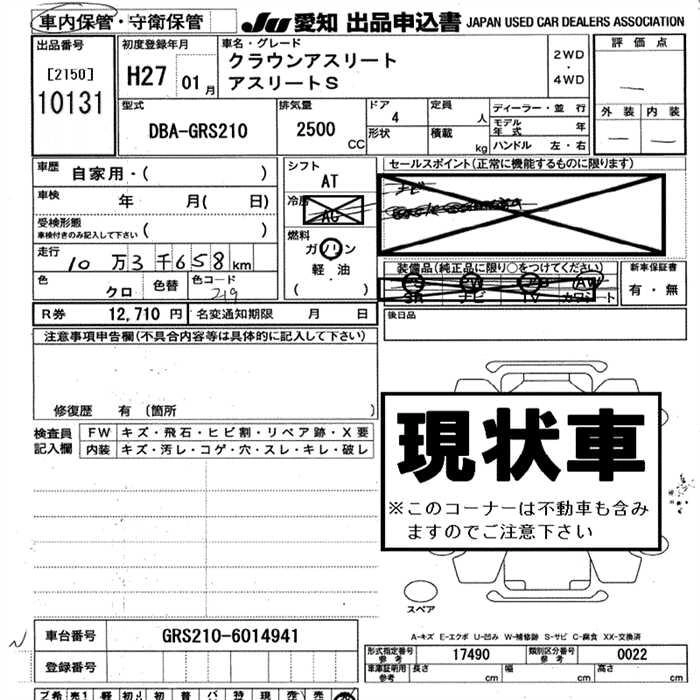 車内保管・守衛保管
JU 愛知 出品申込書 JAPAN USED CAR DEALERS ASSOCIATION
出品番号
[2150]
10131
初度登録年月
H27 01月
車名・グレード
クラウンアスリート
アスリートS
2WD
・
4WD
評価点
外装 内装
型式
DBA-GRS210
排気量
2500 CC
ドア
4
形状
定員
人
積載
kg
ディーラー・並行
モデル年式 年
ハンドル 左・右
車歴 自家用・( )
車検 年 月( 日)
受検形態
車検付きのみ記入して下さい ( )
走行
10万3千658km
色 クロ 色替 色コード 219
シフト
AT
冷房
AC
燃料
ガソリン
軽・油
( )
セールスポイント(正常に機能するものに限ります)
ナビ
装備品(純正品に限り○をつけてください)
SR ナビ TV カワシート
AW
新車保証書
有・無
R券 12,710円 名変通知期限 月 日
後日品
注意事項申告欄(不具合内容等は具体的に記入して下さい)
修復歴 有 (箇所 )
検査員記入欄
FW キズ・飛石・ヒビ割・リペア跡・X要
内装 キズ・汚レ・コゲ・穴・スレ・キレ・破レ
現状車
※このコーナーは不動車も含み
ますのでご注意下さい
スペア
A-キズ E-エクボ U-凹み W-補修跡 S-サビ C-腐食 XX-交換済
車台番号 GRS210-6014941
登録番号
形式指定番号 参考 17490 類別区分番号 参考 0022
車庫証明用 参考 長さ cm 幅 cm 高さ cm